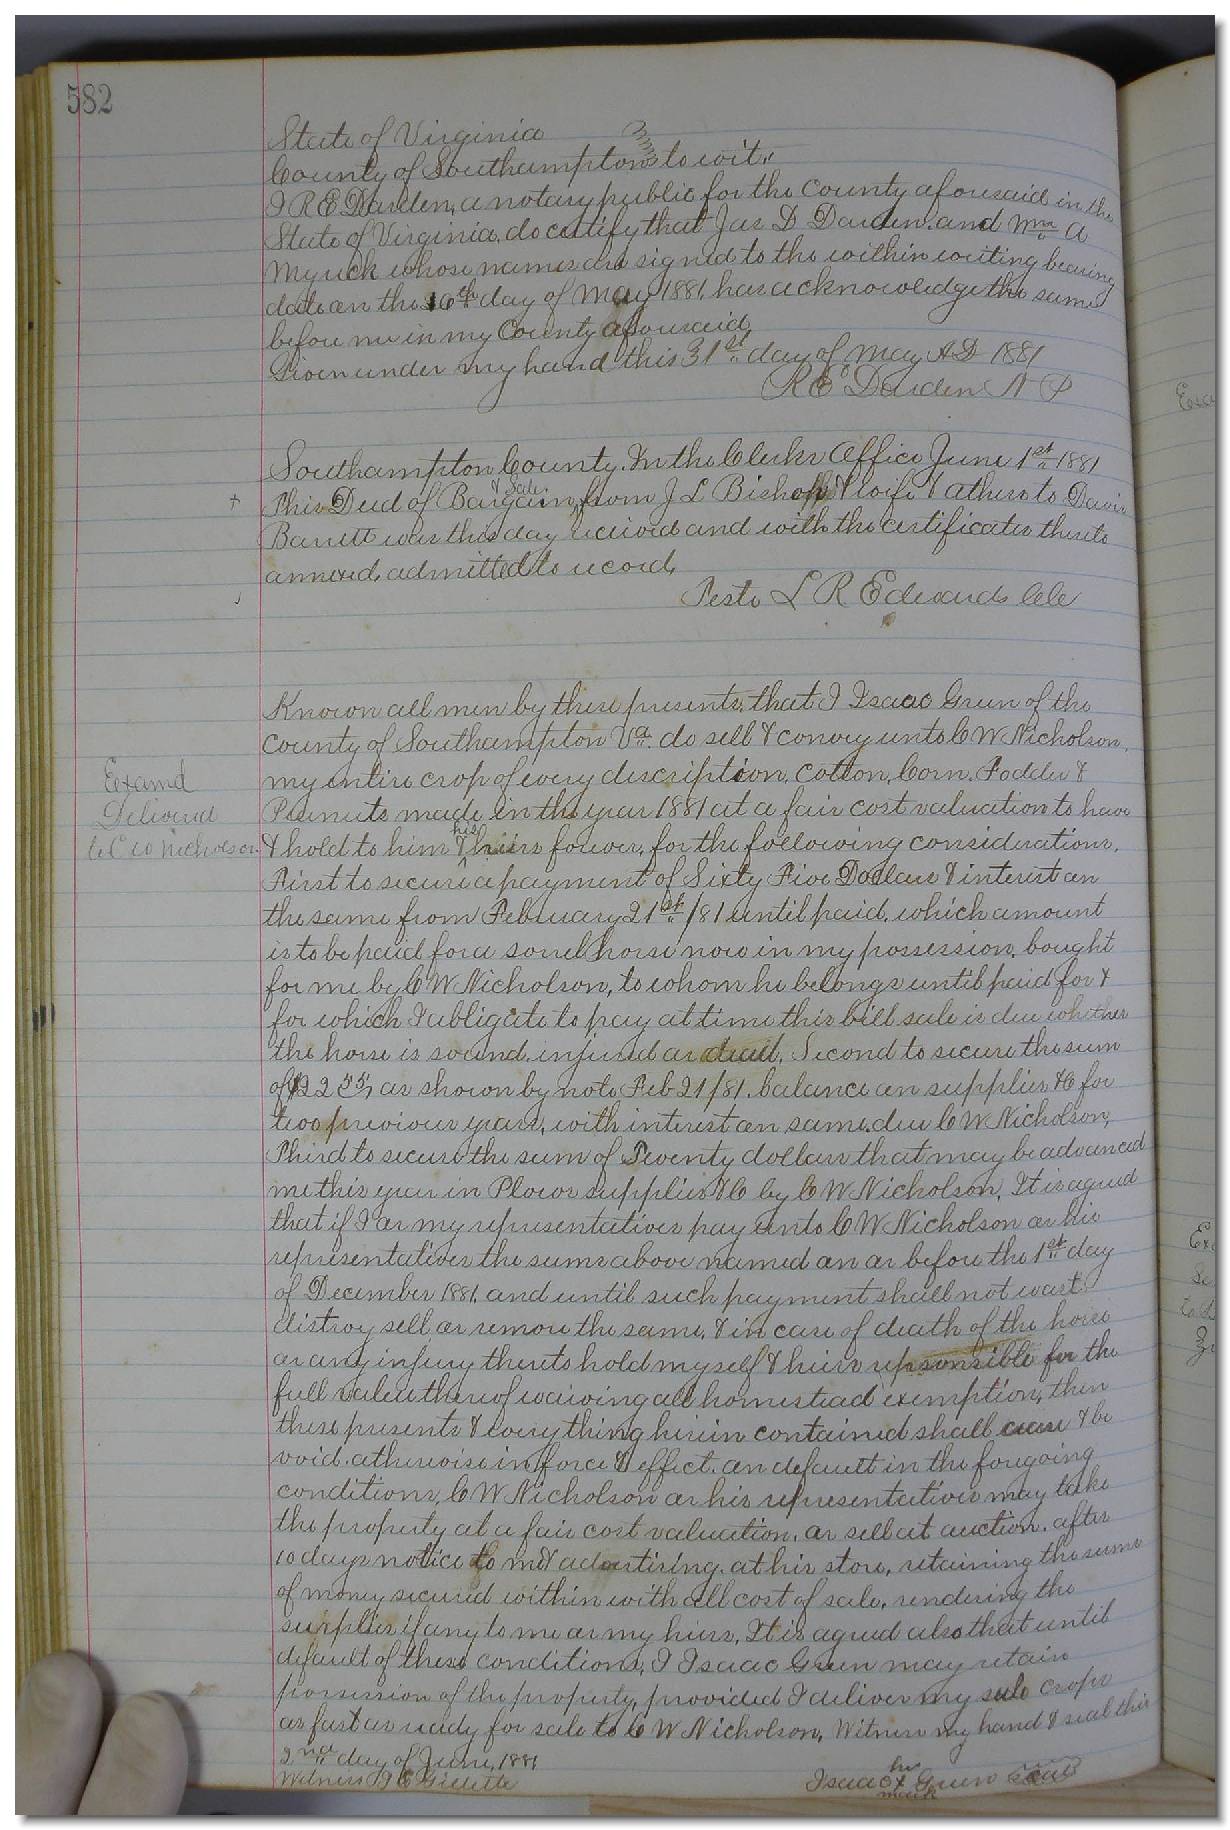 582
State of Virginia
County of Southampton to wit,
I R E Darden, a notary public for the County aforesaid in the
State of Virginia, do certify that Jas D Darden, and Wm A
Myrick whose names are signed to the within writing bearing
date on the 16th day of May 1881, has acknowledge the same
before me in my County aforesaid,
Given under my hand this 31st day of May A D 1881
R E Darden N P
Southampton County. In the Clerks Office June 1st 1881
This Deed of Bargain & Sale, from J L Bishop & wife & others to Davis
Barrett was this day received and with the certificates thereto
annexed, admitted to record,
Teste L R Edwards Clk
Known all men by these presents, that I Isaac Green of the
County of Southampton Va. do sell & convey unto C W Nicholson,
my entire crop of every description, cotton, Corn, Fodder &
Peanuts made in the year 1881 at a fair cost valuation to have
Examd
Delivered
to C W Nicholson
& hold to him & his heirs forever, for the following considerations.
First to secure a payment of Sixty Five Dollars & interest on
the same from February 21st/81 until paid, which amount
is to be paid for a sorrel horse now in my possession, bought
for me by C W Nicholson, to whom he belongs until paid for &
for which I obligate to pay at time this bill sale is due whether
the horse is sound, injured or dead, Second to secure the sum
of $22 55, as shown by note Feb 21/81. balance on supplies &C for
two previous years, with interest on same, due C W Nicholson,
Third to secure the sum of Seventy dollars that may be advanced
me this year in Plows supplies &C by C W Nicholson, It is agreed
that if I or my representatives pay unto C W Nicholson or his
representatives the sums above named on or before the 1st day
of December 1881, and until such payment shall not wast
distroy sell or remove the same, & in case of death of the horse
or any injury thereto hold myself & heirs repsonsible for the
full value thereof waiving all homestead exemption, then
these presents & everything herein contained shall cease & be
void, otherwise in force & effect, on default in the foregoing
conditions, C W Nicholson or his representatives may take
the property at a fair cost valuation, or sell at auction, after
10 days notice to me & advertising, at his store, retaining the sums
of money secured within with all cost of sale, rendering the
surplus if any to me or my heirs, It is agreed also that until
default of these conditions, I Isaac Green may retain
possession of the property, provided I deliver my sale crops
as fast as ready for sale to C W Nicholson, Witness my hand & seal this
2nd day of June, 1881
Witness J E Gillette
Isaac his X mark Green Seal